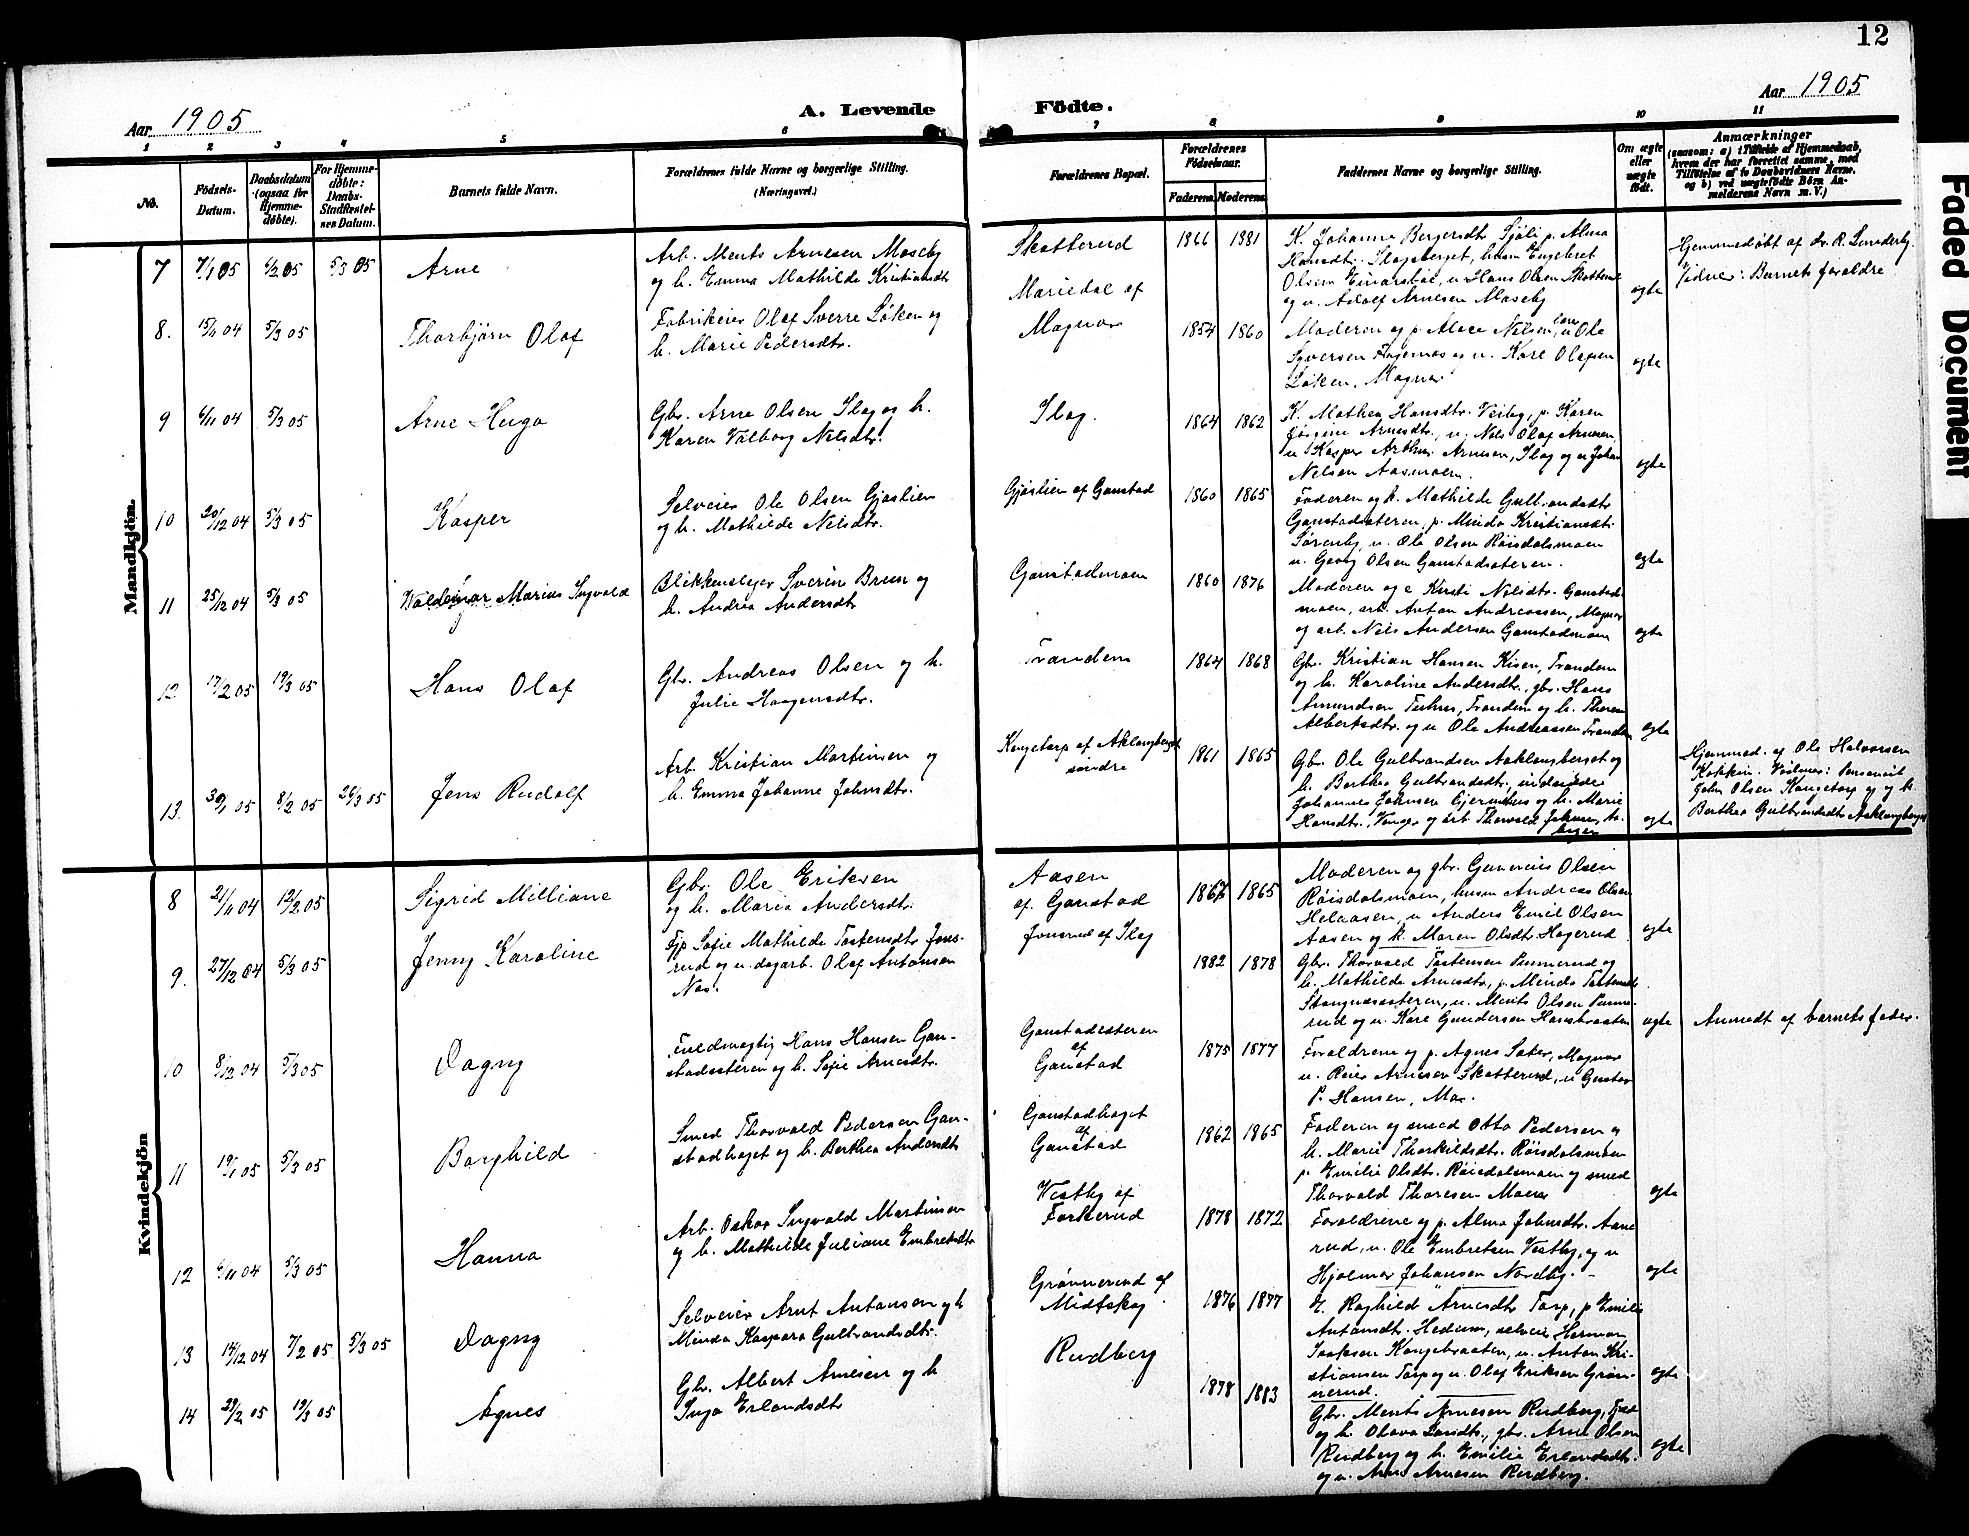 12
Aar 1905
A. Levende
Födte.
Aar 1905
1 2 3 4 5 6 7 8 9 10 11
No.
Födsels-
Datum.
Daabsdatum
(ogsaa for
Hjemme-
døbte).
For Hjemme-
døbte:
Daabs-
Stadfæstel-
ses Datum.
Barnets fulde Navn.
Forældrenes fulde Navne og borgerlige Stilling.
(Næringsvei.)
Forældrenes Bopæl.
Forældrenes
Födselsaar.
Faderens Moderens
Faddernes Navne og borgerlige Stilling.
Om ægte
eller
uægte
født.
Anmærkninger
(saasom: a) i Tilfælde af Hjemmedaab,
hvem der har forrettet samme, med
Tilföielse af to Daabsvidners Navne.
og b) ved uægtefödte Börn An-
melderens Navn m.V.)
Mandkjön.
7 7/1 05 6/2 05 5/3 05 Arne
Arb. Ments Arnesen Moseby
og h. Emma Mathilde Kristiansdtr
Skotterud
1866 1881
K. Johanne Bergersdtr Sjöli p. Alma
Hansdtr. Slagberget, husm Engebret
Olsen Einarstöl, u Hans Olsen Skotterud
og u. Adolf Arnesen Moseby
ægte
Hjemmedöbt af dr. R. Sunderby.
Vidner: Barnets foræ​ldre
8. 15/11 04 5/3 05 Thorbjörn Olaf
Fabrikeier Olaf Sverre Løken og
h. Marie Pedersdtr.
Mariedal af
Magnor
1854 1860
Moderen og p. Alice Nilsen, u Ole
Syversen Fagernæs og u. Kåre Olafsen
Løken, Magnor
ægte
9 6/11 04 5/3 05 Arne Hugo
Gbr. Arne Olsen Ilag og h.
Karen Valborg Nilsdtr.
Ilag.
1864 1862
K. Mathea Hansdtr. Veiby, p. Karen
Jørgine Arnesdtr., u. Nils Olaf Arnesen,
u Kasper Arthur Arnesen, Ilag og u Johan
Nelsen Aasmoen.
ægte
10 20/12 04 5/3 05 Kasper
Selveier Ole Olsen Gjøslien
og h. Mathilde Nilsdtr.
Gjøslien af Ganstad
1860 1865
Faderen og k. Mathilde Gulbrandsdtr
Ganstadsæteren, p. Minda Kristiansdtr.
Sørenby, u. Ole Olsen Røisdalsmoen
u. Georg Olsen Ganstadsæteren.
ægte
11 25/12 04 5/3 05 Valdemar Marius Ingvald
Blikkenslager Sverin Brun og
h. Andrea Andersdtr
Ganstadmoen
1860 1876
Moderen og e Kirsti Nilsdtr. Ganstad-
moen, arb. Anton Andreassen, Magnor
og arb. Nils Andersen Ganstadmoen
ægte
12 17/2 05 19/3 05 Hans Olaf
Gbr. Andreas Olsen og h.
Julie Haagensdtr.
Tranden
1864 1868
Gbr. Kristian Hansen Kisen, Tranden
og h. Karoline Andersdtr., gbr. Hans
Amundsen Tuhus, Tranden og h. Theren
Albertsdtr. og u Ole Andreassen Tranden
ægte
13. 30/1 05 8/2 05 26/3 05 Jens Rudolf
Arb. Kristian Martinsen og
h. Emma Johanne Johnsdtr.
Kongetorp af Aklangberget
søndre
1861 1865
Gbr. Ole Gulbrandsen Aaklangberget og
h. Berthea Gulbrandsdtr., inderster
Johannes Johnsen Gjermshus og h. Marie
Hansdtr., Venger og arb Thorvald Johnsen
ægte
Hjemmed. af Ole Halvorsen
John Olsen Kongetorp og h.
Berthea Gulbrandsdtr Aaklangberget
Kvindekjön
8 21/11 04 12/2 05 Sigrid Milliane
Gbr. Ole Eriksen
og h. Maria Andersdtr.
Aasen
af Ganstad
1867 1865
Moderen og gbr. Gunerius Olsen
Røisdalsmoen, husm Andreas Olsen
Helaasen, u Anders Emil Olsen
Aasen og k. Maren Olsdtr. Hagerud
ægte
9. 27/12 04 5/3 05 Jenny Karoline
Fjp Sofie Mathilde Tostensdtr. Jons-
rud og u. dagarb. Olaf Antonsen
Nos.
Jonsrud af Ilag
1882 1878
Gbr. Thorvald Tostensen Punnerud og
h. Mathilde Arnesdtr, p. Minda Tostensdtr
Stangnæssæteren, u. Ments Olsen Punne-
rud og u. Kåre Gundersen Hansbraaten
uægte
Anmeldt af barnets fader.
10 8/12 04 5/3 05 Dagny
Fuldmægtig Hans Hansen Gan-
stadsæteren og h. Sofie Arnesdtr.
Ganstadsæteren
af
Ganstad
1875 1877
Forældrene og p. Agnes Saker, Magnor
u. Reier Arnesen Skotterud, u Gustav
P. Hansen, Mos.
11 19/1 05 5/3 05 Borghild
Smed Thorvald Pedersen Gan-
stadhaget og h. Berthea Andersdtr
Ganstadhaget
af
Ganstad
1862 1865
Faderen og smed Otto Pedersen og
h. Marie Thorkildsdtr. Røisdalsmoen
p. Emilie Olsdtr. Røisdalsmoen og smed
Thorvald Thoresen Moen
ægte
12 6/11 04 5/3 05 Hanna
Arb. Oskar Ingvald Martinsen
og h. Mathilde Juliane Embretsdtr
Vestby af
Forkerud
1878 1872
Forældrene og p. Alma Johnsdtr. Aane-
rud, u. Ole Embretsen Vestby, og u
Hjalmar Johansen Nordby.
ægte
13 14/12 04 7/2 05 5/3 05 Dagny
Selveier Arnt Antonsen og h
Minda Kaspara Gulbrandsdtr.
Grønnerud af
Midtskog
1876 1877
E. Raghild Arnesdtr Torp, p Emilie
Antonsdtr. Hedum, selveier Herman
Isaksen Kongebraaten, u. Anton Kri-
stiansen Torp og u. Olaf Eriksen Grøn-
nerud.
ægte
14 29/2 05 19/3 05 Agnes
Gbr. Albert Arnesen og h
Inga Erlandsdtr
Rudberg
1878 1883
Gbr. Ments Arnesen Rudberg,
og h. Olava Larsdtr., gbr. Arne Olsen
Rudberg og h. Emilie Erlandsdtr.
og u. Arne Arnesen Rudberg.
ægte
Faded Document